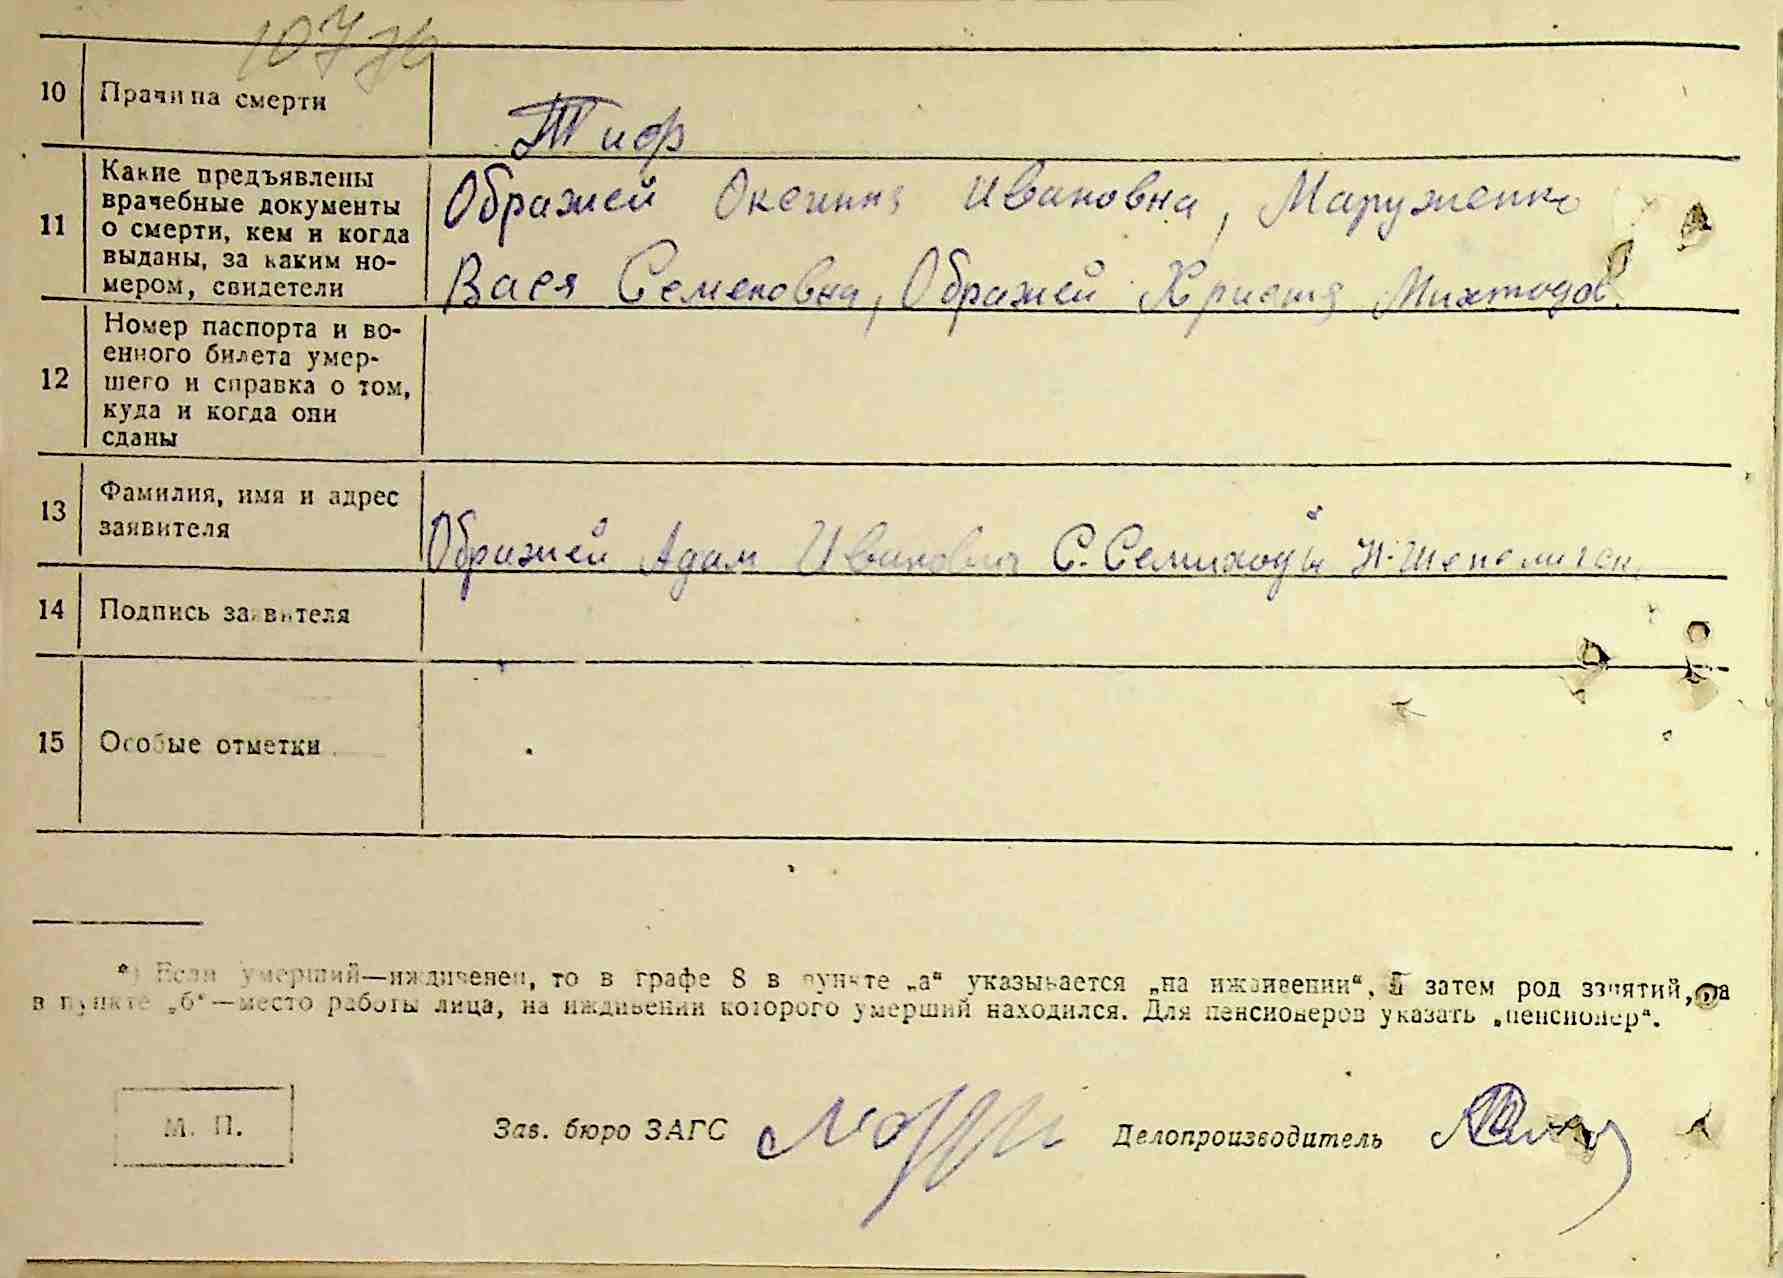 10
Причина смерти
Тиф
11
Какие предъявлены
врачебные документы
о смерти, кем и когда
выданы, за каким но-
мером, свидетели
Ображей Оксиния Ивановна, Маруженко
Вася Семеновна, Ображей Христя
12
Номер паспорта и во-
енного билета умер-
шего и справка о том,
куда и когда они
сданы
13
Фамилия, имя и адрес
заявителя
Ображей Адам Ивановна С. Семиходы Н-Шепеличск.
14
Подпись заявителя
15
Особые отметки
*) Если умерший—иждивенец, то в графе 8 в пункте „а“ указывается „на иждивении“, а затем род занятий, а
в пункте „б“—место работы лица, на иждивении которого умерший находился. Для пенсионеров указать „пенсионер“.
М. П.
Зав. бюро ЗАГС
Делопроизводитель